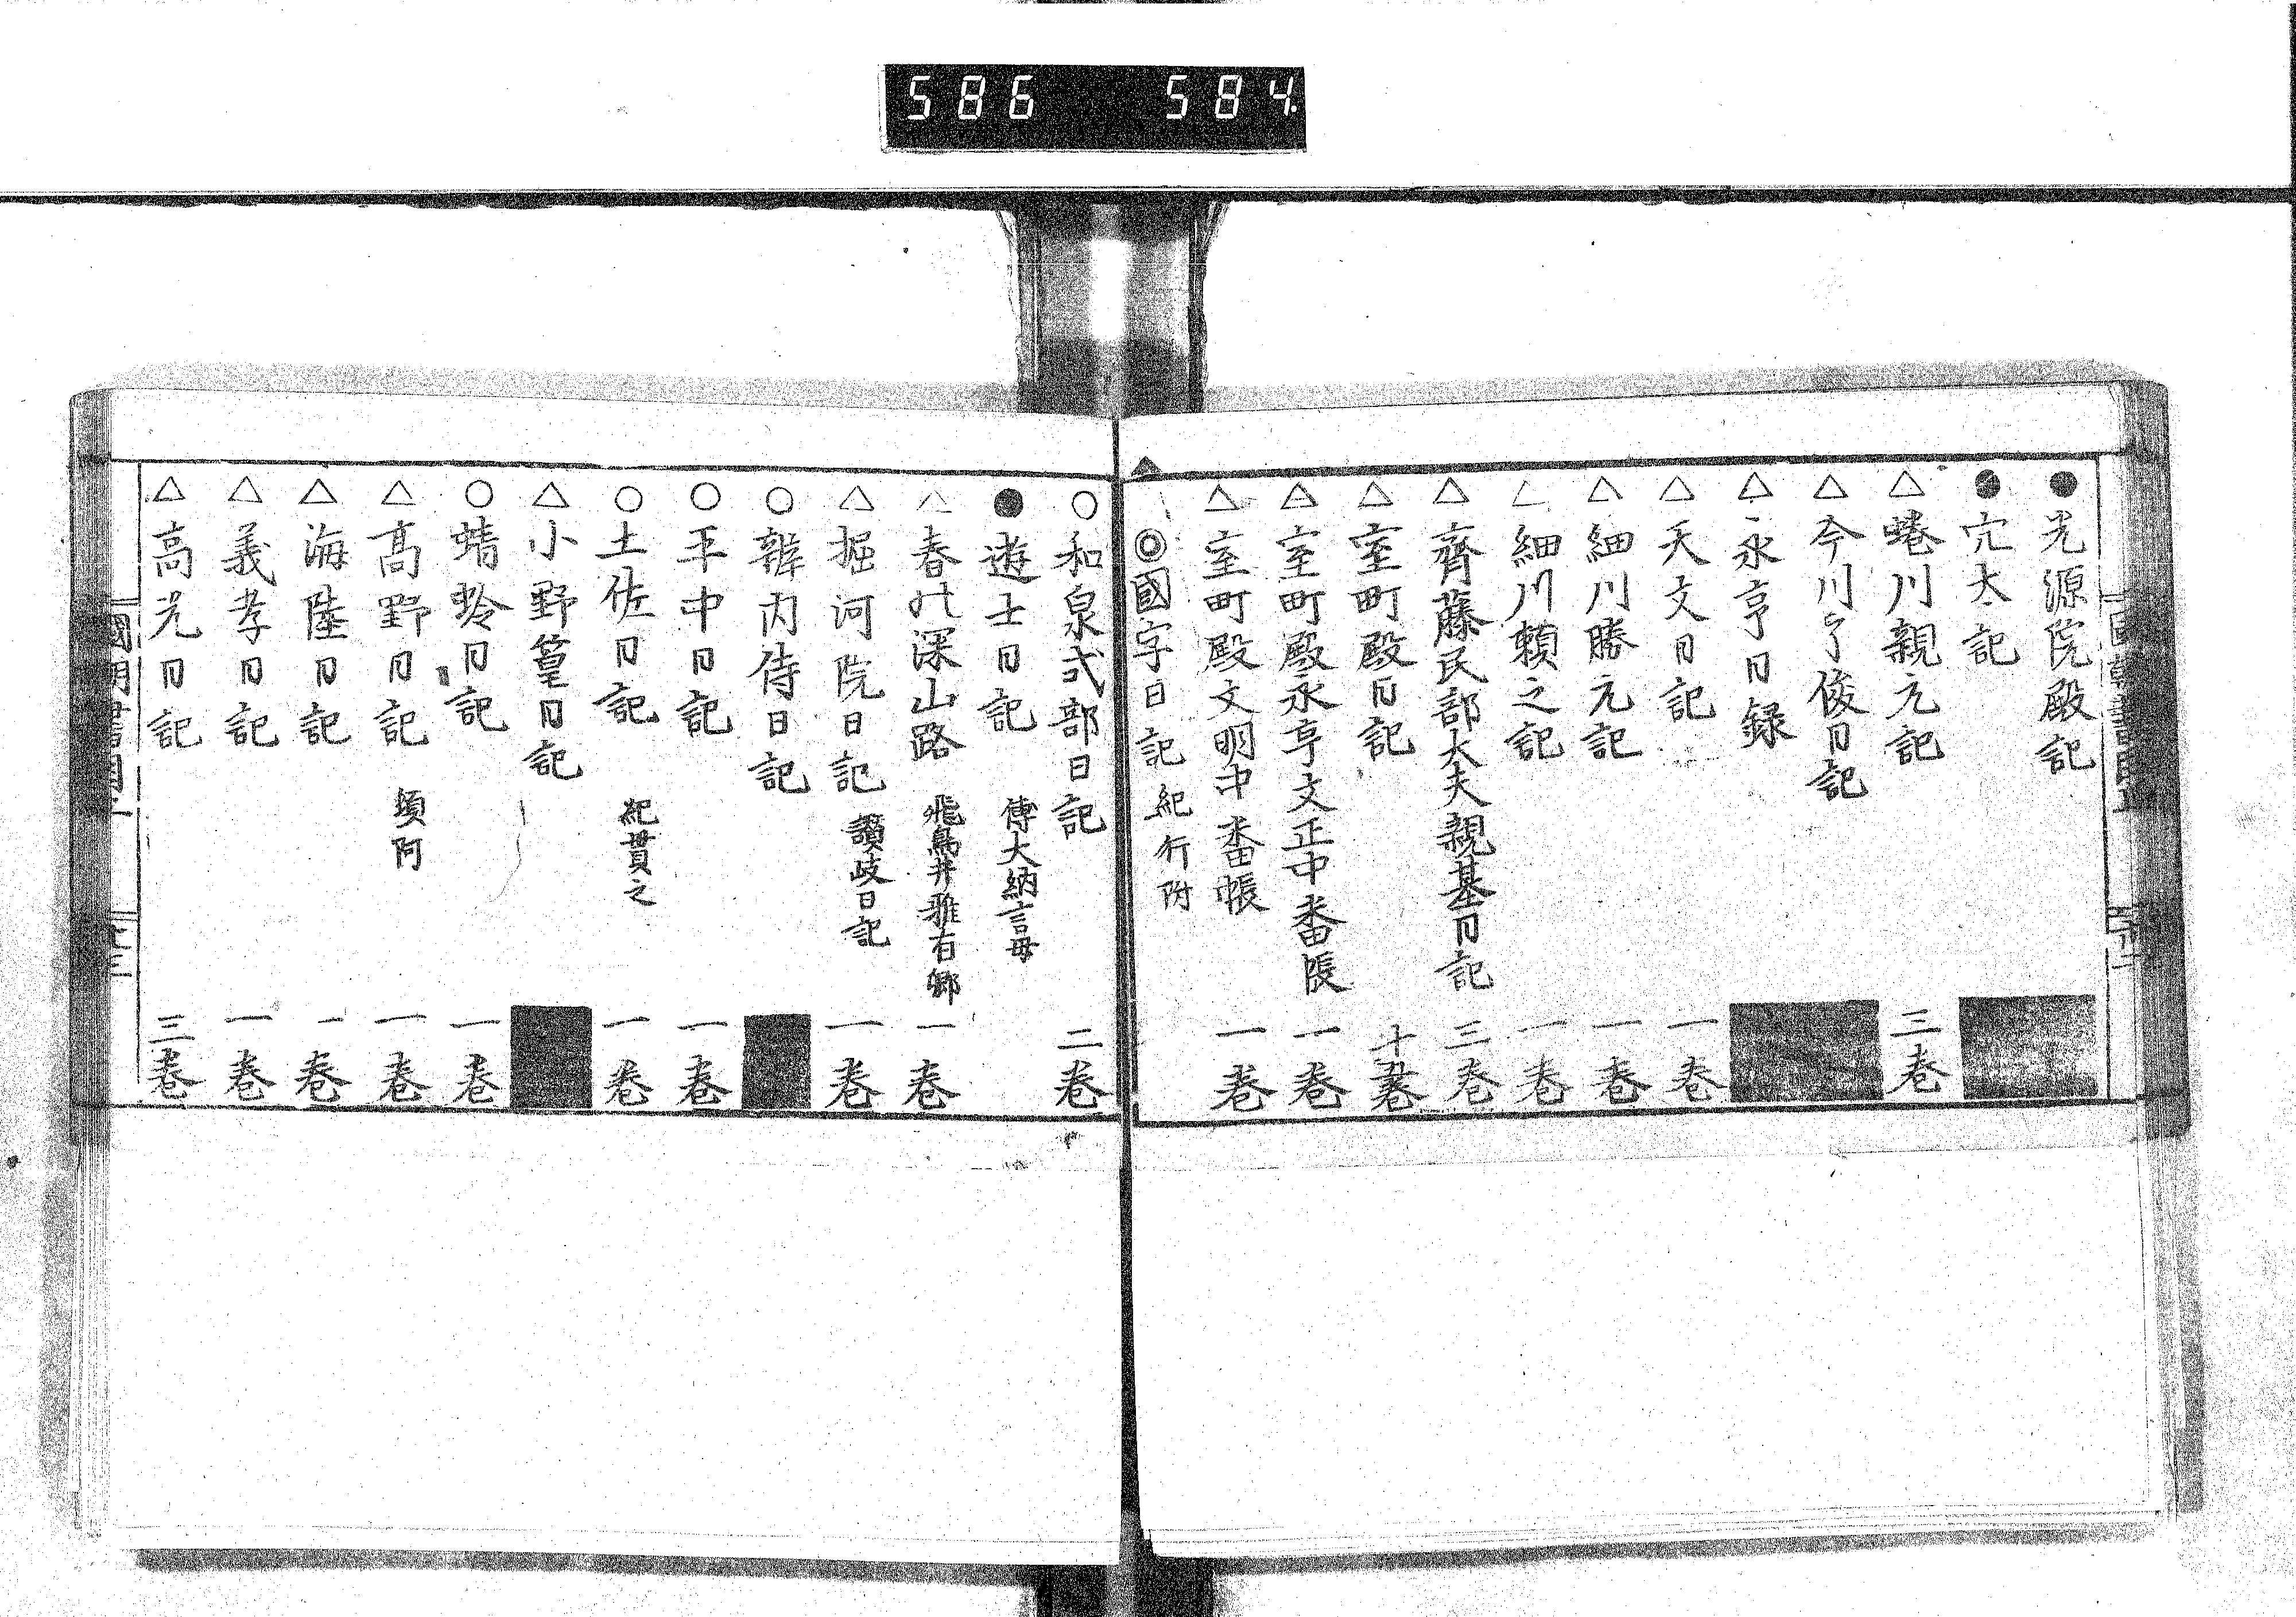 586 584
●光源院殿記
●宂太記
△蜷川親元記 三巻
△今川了俊日記
△永亨日録
△天文日記 一巻
△細川勝元記 一巻
△細川頼之記 一巻
△齊藤民部大夫親基日記 三巻
△室町殿日記 十巻
△室町殿永亨文正中番帳 一巻
△室町殿文明中番帳 一巻
◎國字日記 紀行附
○和泉式部日記 二巻
●遊士日記 傳大納言母
△春の深山路 飛鳥井雅有卿 一巻
△掘河院日記 讚岐日記 一巻
○辨内侍日記
○平中日記 一巻
○土佐日記 紀貫之 一巻
△小野篁日記
○蜻蛉日記 一巻
△髙野日記 頓阿 一巻
△海陸日記 一巻
△義孝日記 一巻
△高光日記 三巻